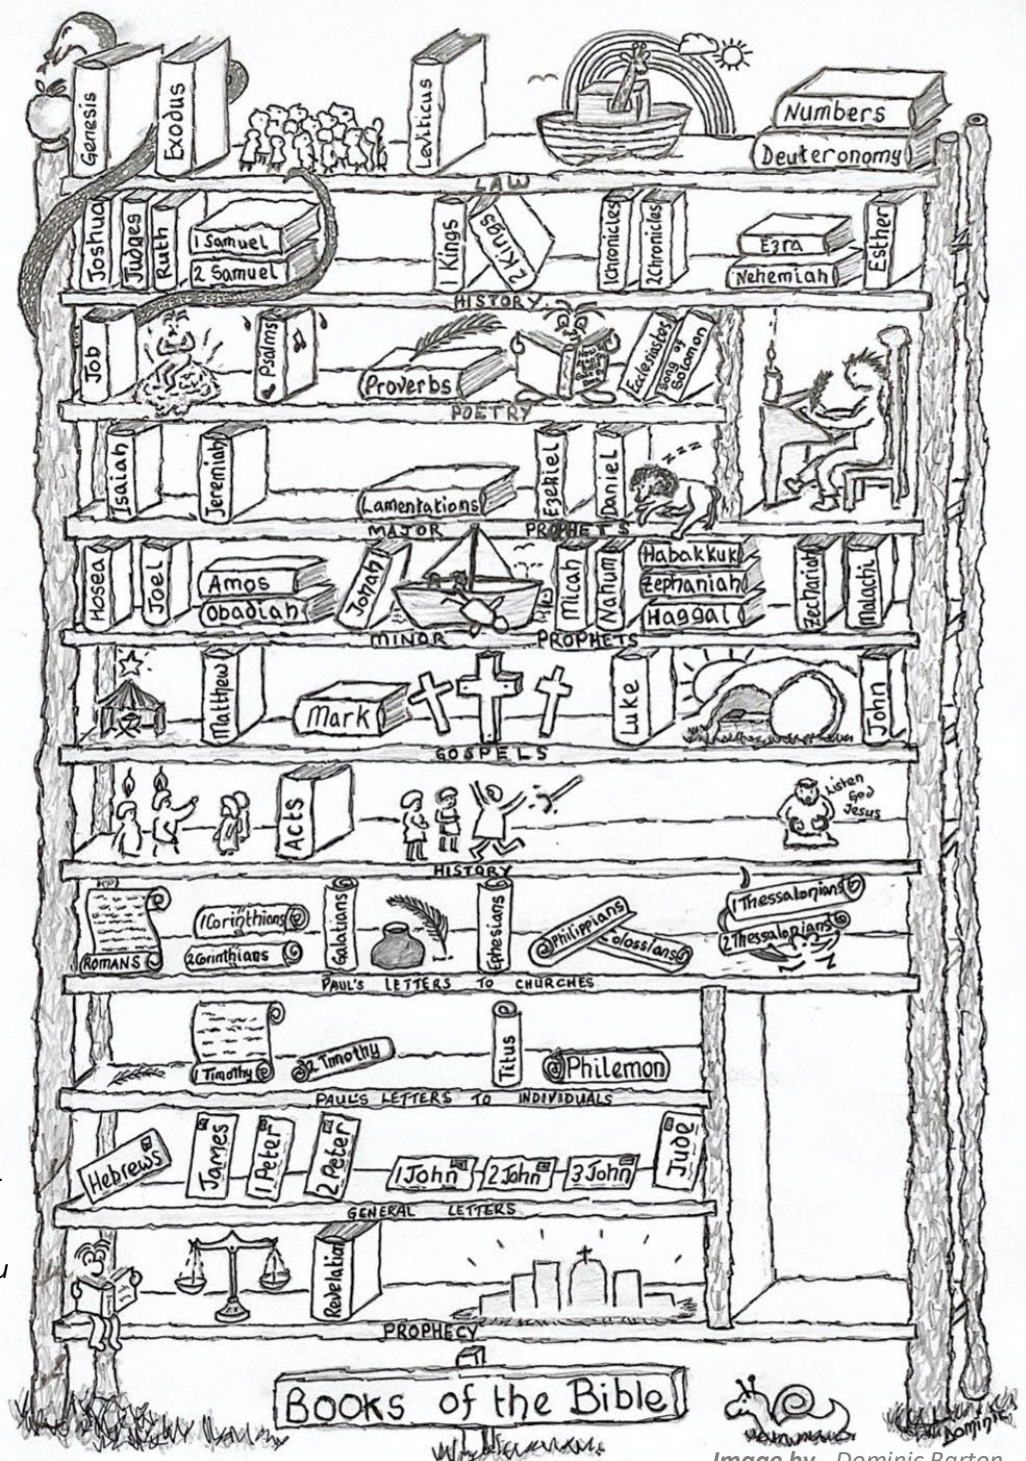 Genesis
Exodus
Leviticus
Numbers
Deuteronomy
LAW
Joshua
Judges
Ruth
1 Samuel
2 Samuel
1 Kings
2 Kings
1 Chronicles
2 Chronicles
Ezra
Nehemiah
Esther
HISTORY
Job
Psalms
Proverbs
Eclesiastes
Song of
Solomon
POETRY
Isaiah
Jeremiah
Lamentations
Ezekiel
Daniel
z z z
MAJOR PROPHETS
Hosea
Joel
Amos
Obadiah
Jonah
Micah
Nahum
Habakkuk
Zephaniah
Haggai
Zechariah
Malachi
MINOR PROPHETS
Matthew
Mark
Luke
John
GOSPELS
Acts
Listen
God
Jesus
HISTORY
ROMANS
1 Corinthians
2 Corinthians
Galatians
Ephesians
Philippians
Colossians
1 Thessalonians
2 Thessalonians
PAUL'S LETTERS TO CHURCHES
1 Timothy
2 Timothy
Titus
Philemon
PAUL'S LETTERS TO INDIVIDUALS
Hebrews
James
1 Peter
2 Peter
1 John
2 John
3 John
Jude
GENERAL LETTERS
Revelation
PROPHECY
Books of the Bible
Dominic
Image by Dominic Barton